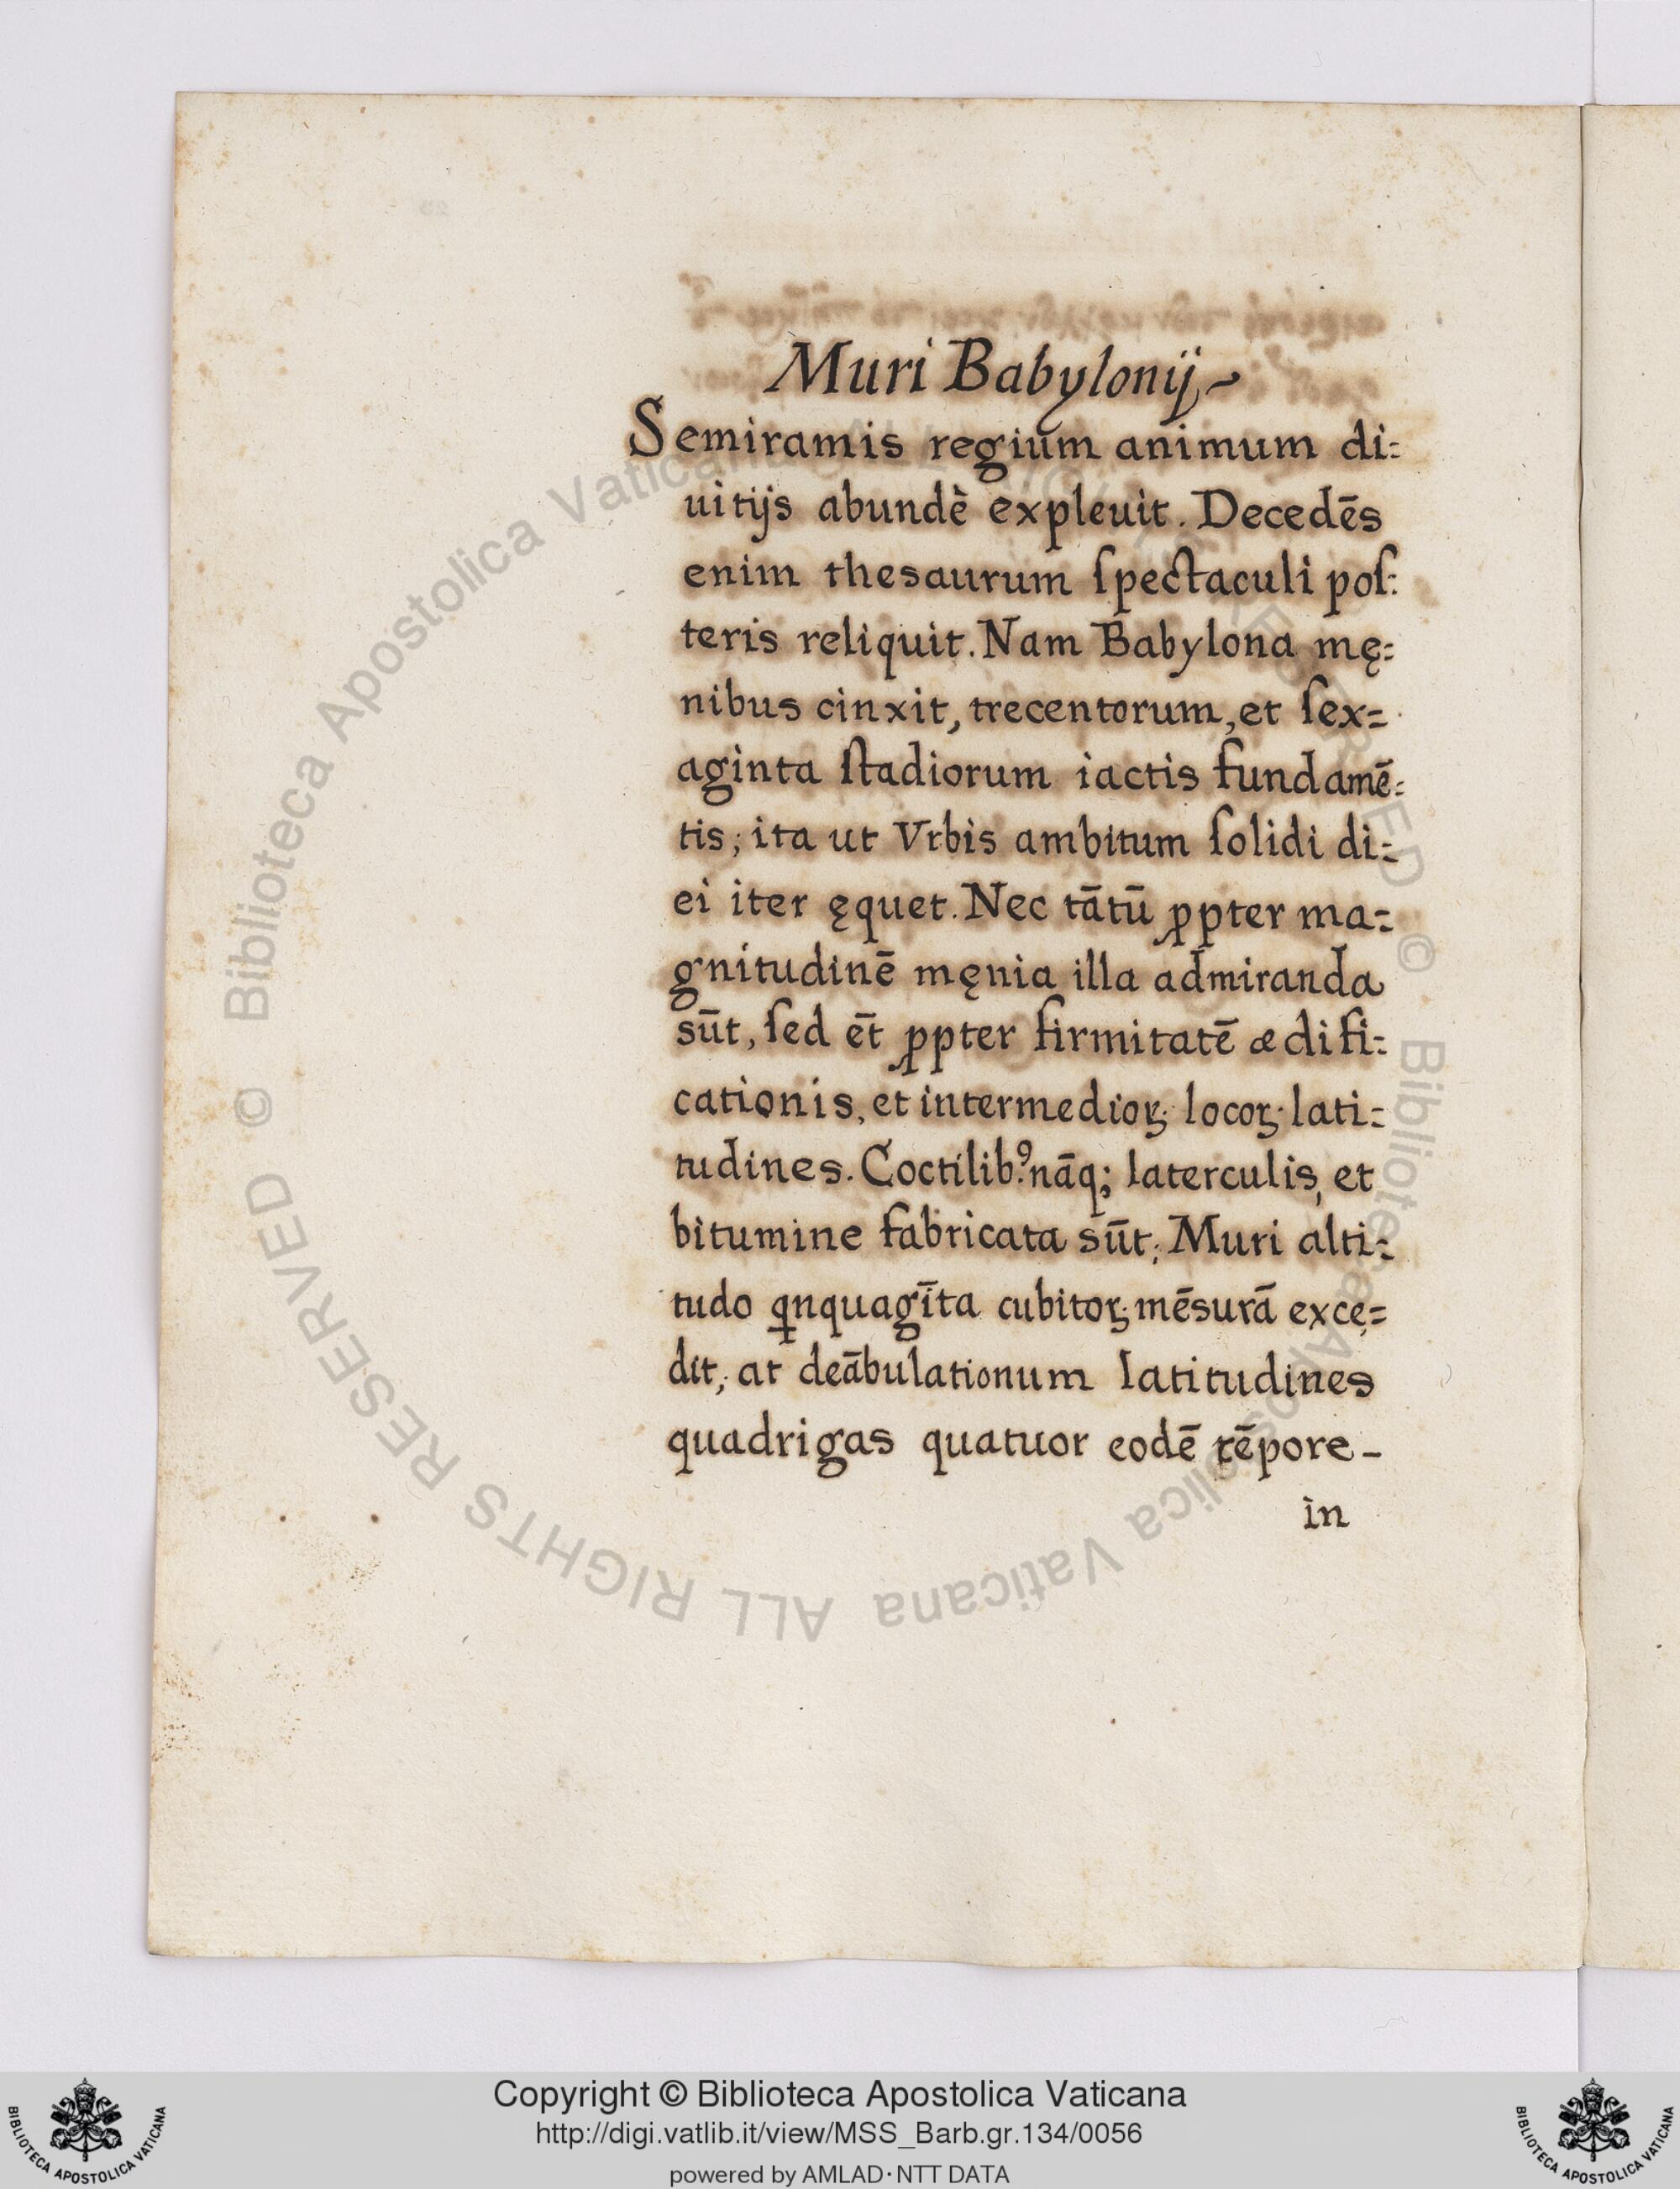 Muri Babylonij
Semiramis regium animum di:
uitijs abundè expleuit. Decedēs
enim thesaurum ſpectaculi poſ:
teris reliquit. Nam Babylona mę:
nibus cinxit, trecentorum, et ſex=
aginta ſtadiorum iactis fundamē:
tis; ita ut Vrbis ambitum ſolidi di:
ei iter ęquet. Nec tātū ꝓpter ma:
gnitudinē męnia illa admiranda
sūt, ſed ēt ꝓpter firmitatē ædifi:
cationis, et intermedioꝝ locoꝝ lati:
tudines. Coctilibꝰ nāq; laterculis, et
bitumine fabricata sūt; Muri alti:
tudo ꝗnquagīta cubitoꝝ mēsurā exce=
dit; at deābulationum latitudines
quadrigas quatuor eodē tēpore -
in
© Biblioteca Apostolica Vaticana ALL RIGHTS RESERVED © Biblioteca Apostolica Vaticana ALL RIGHTS RESERVED
Copyright © Biblioteca Apostolica Vaticana
http://digi.vatlib.it/view/MSS_Barb.gr.134/0056
powered by AMLAD·NTT DATA
BIBLIOTECA APOSTOLICA VATICANA
BIBLIOTECA APOSTOLICA VATICANA